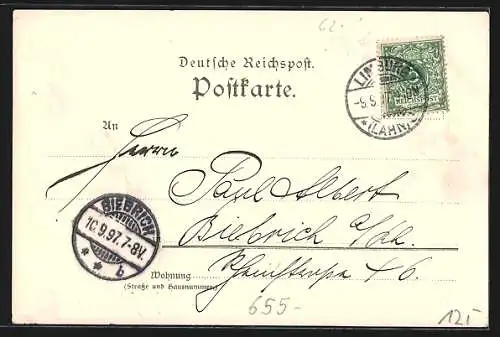 62.-
Deutsche Reichspost.
Postkarte.
LIMBURG
-9.9.97
* (LAHN)
REICHSPOST
An
Herrn
Paul Albert
Biebrich a/Rh.
Rheinstrasse 46
BIEBRICH
10.9.97.7-8V.
* * b
Wohnung
(Straße und Hausnummer)
655-
125